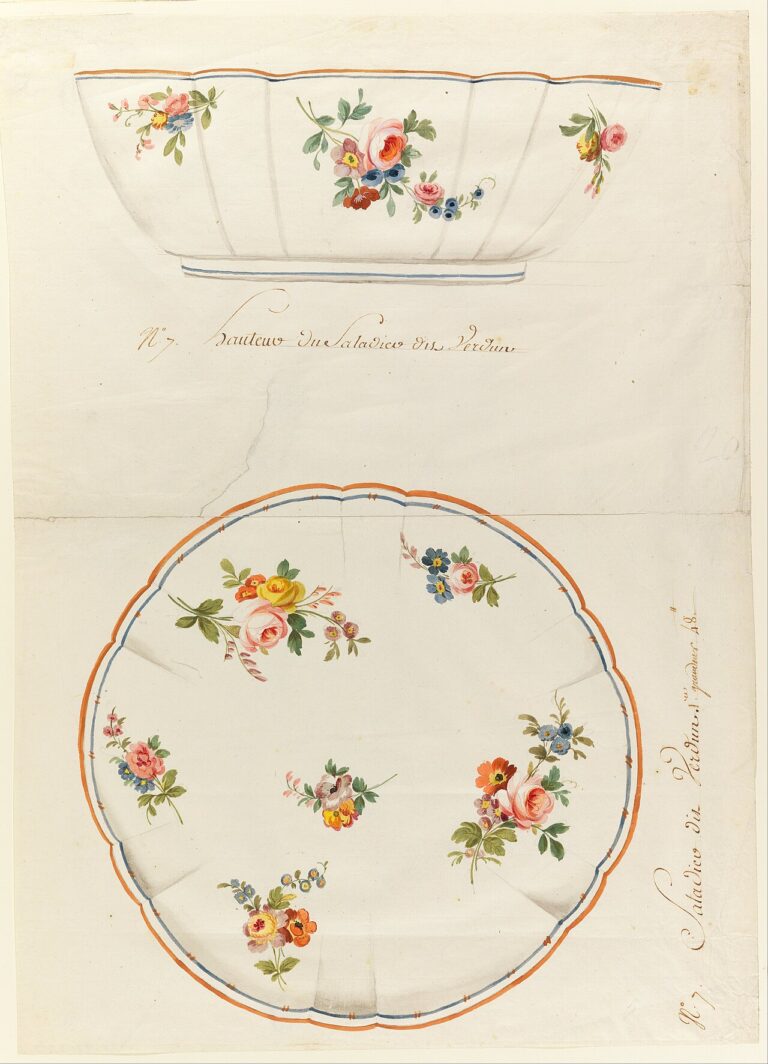 Nº 7. Hauteur du Saladier dit Verdun
Nº 7. Saladier dit Verdun 1ère grandeur 48"